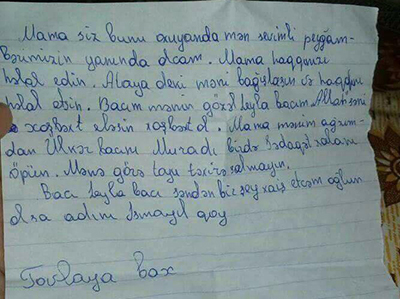 Mama siz bunu oxuyanda mən sevimli peyğəm-
bərimizin yanında olcam. Mama haqqınızı
halal edin. Ataya deki məni bağışlasın və haqqını
halal etsin. Bacım mənim gözəl Leyla bacım Allah səni
xoşbəxt eləsin xoşbəxt ol. Mama mənim ağzım-
dan Ülkər bacımı Muradı birdə Sədaqət xalanı
öpün. Mənə görə toyu təxirə salmayın.
Bacı Leyla bacı səndən bir şey xaiş etcəm oğlun
olsa adını İsmayıl qoy
Tovlaya bax